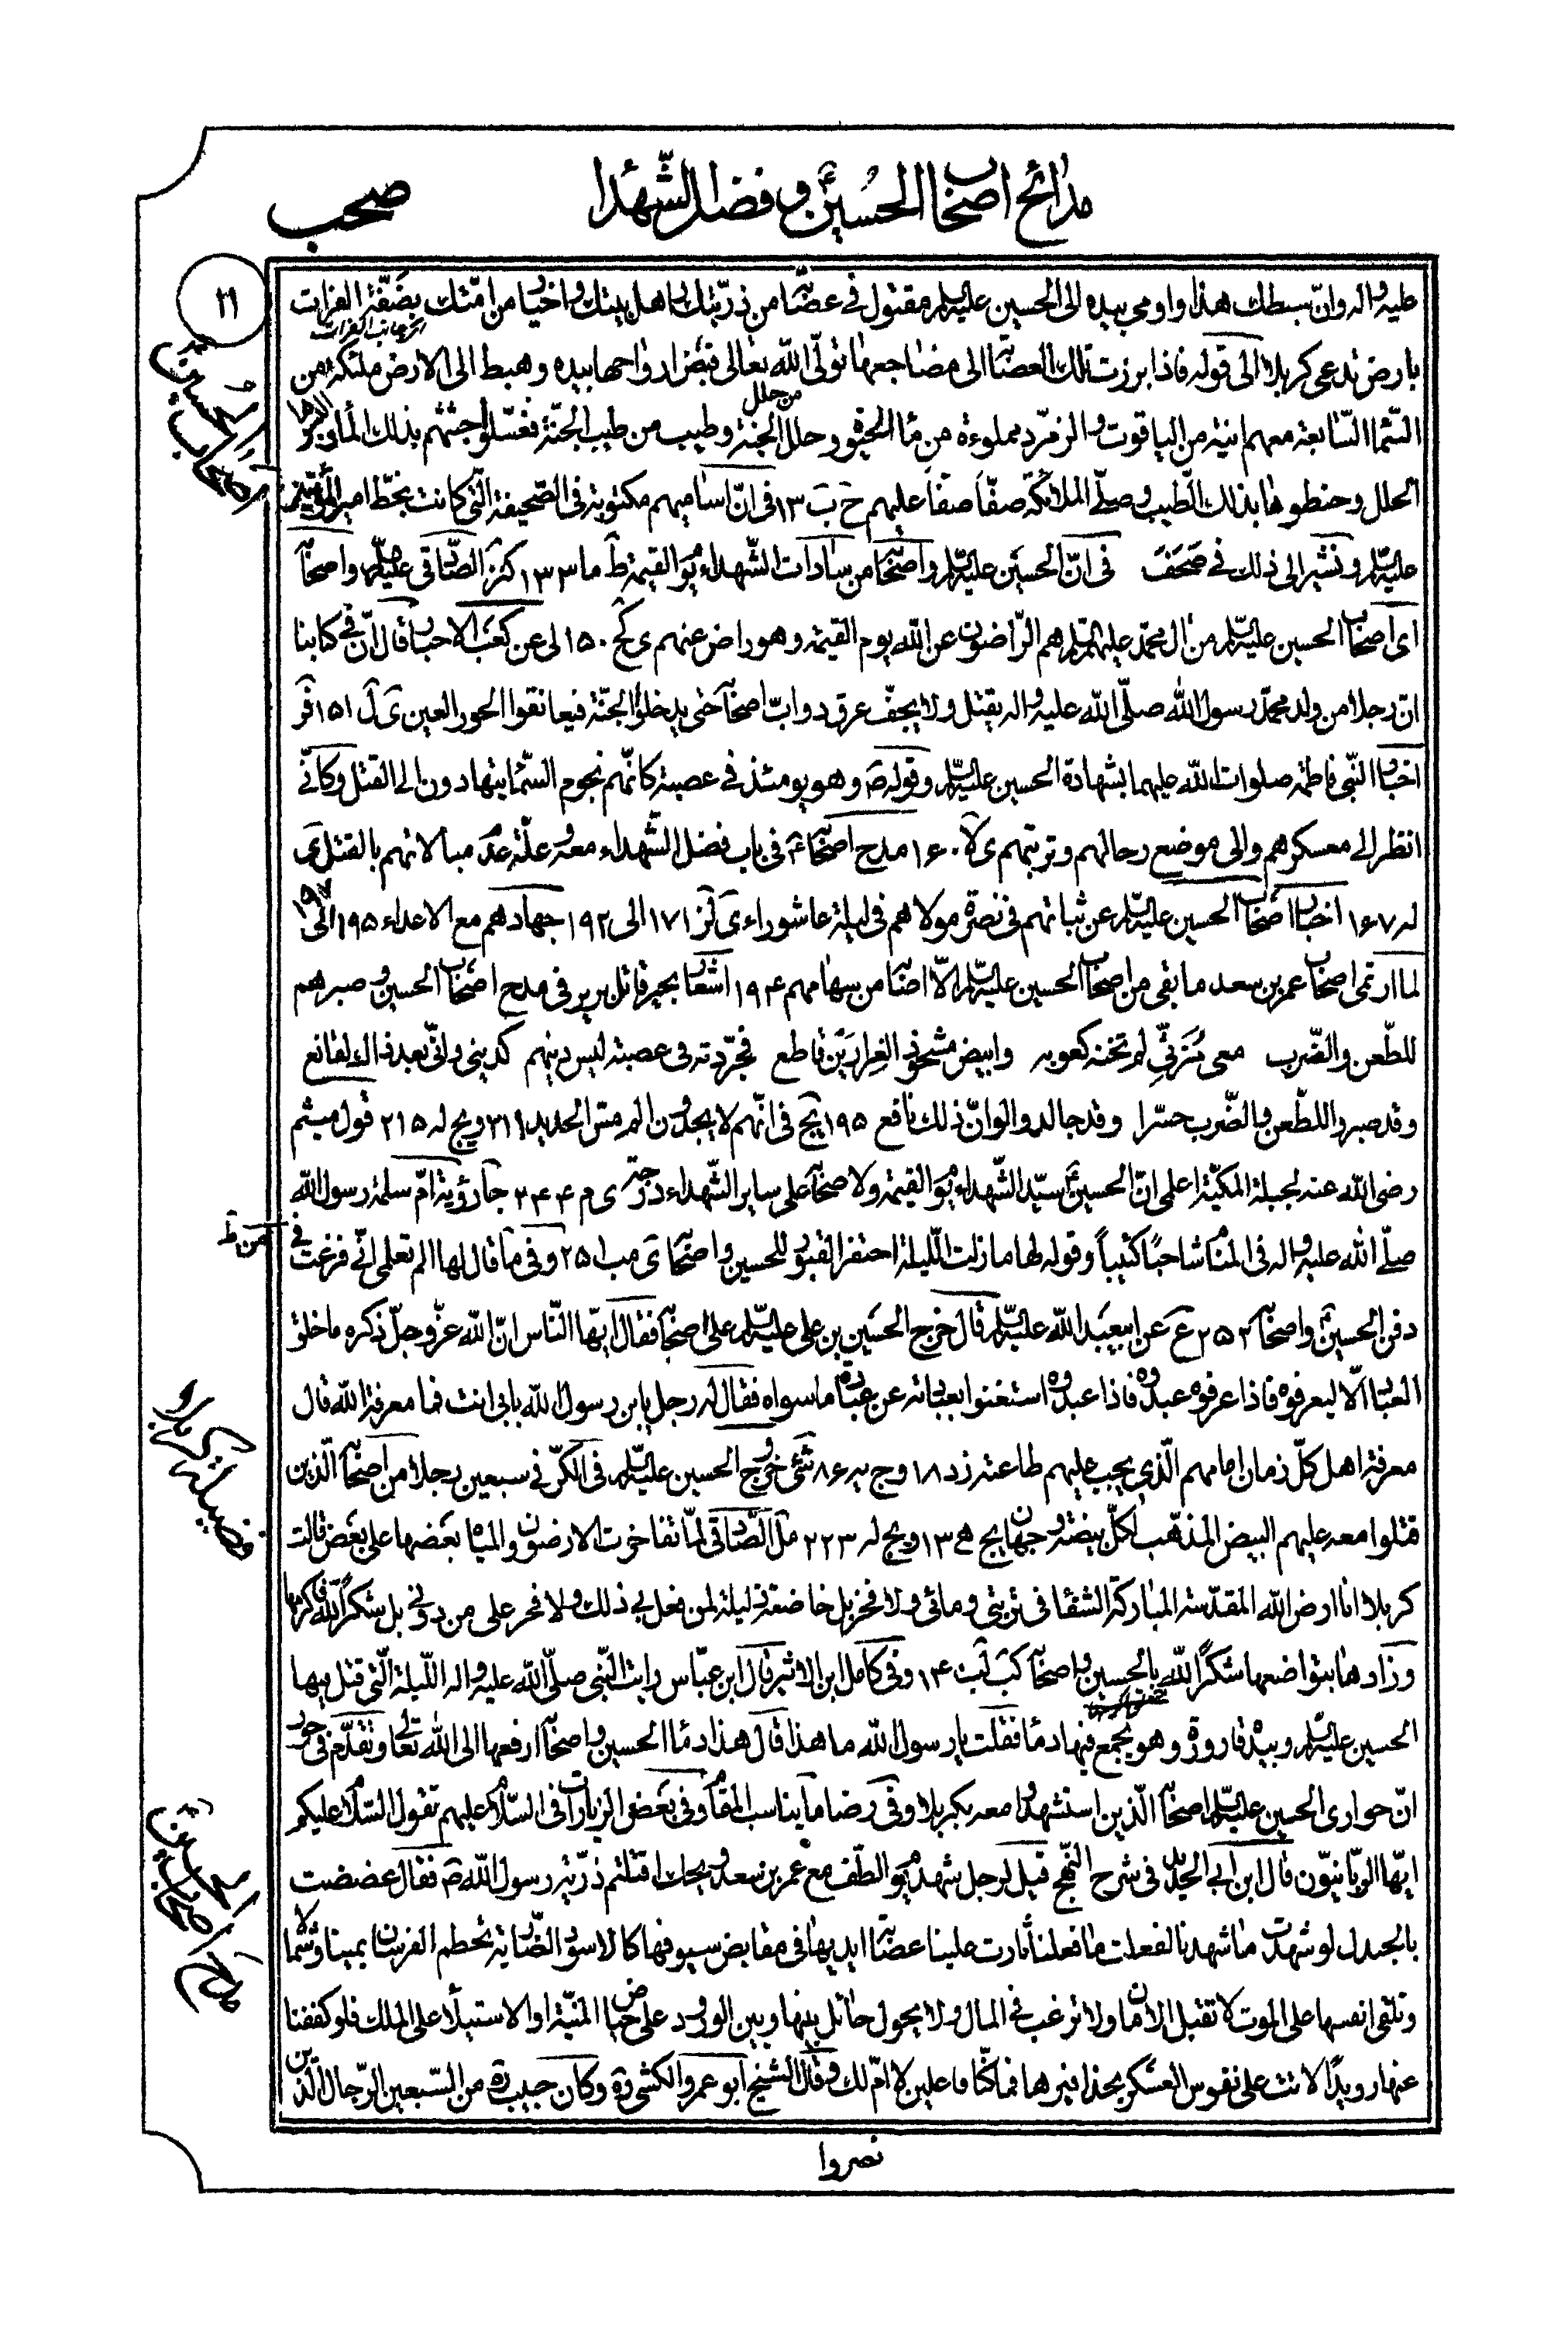 مدائح اصحاب الحسين ع وفضل الشهداء
صحب
٢١
عليه واله وانّ سبطك هذا واومى بيده الى الحسين عليه السلم مقتول في عصابة من ذرّيّتك واهل بيتك واخيار من امّتك بضفّة الفرات
اى جانب الفرات
بارض تدعى كربلا الى قوله فاذا برزت تلك العصابة الى مضاجعها تولّى الله تعالى قبض ارواحها بيده وهبط الى الارض ملئكة من
السّماء السّابعة معهم انية من الياقوت والزمرّد مملوءة من ماء الحيوة وحلل من حلل الجنة وطيب من طيب الجنّة فغسّلوا جثثهم بذلك الماء والبسوها
الحلل وحنطوها بذلك الطّيب وصلّى الملائكة صفّاً صفّاً عليهم ح ب ١٣ فى انّ اساميهم مكتوبة فى الصّحيفة الّتى كانت بخطّ امير المؤمنين
عليه السّلم ونشير الى ذلك في صحف فى انّ الحسين عليه السّلم واصحابه من سادات الشّهداء يوم القيمة ط ما ١٣٣ كنز الصّادقى عليه السلم واصحابه
اى اصحاب الحسين عليه السّلم من ال محمّد عليهم السّلم هم الرّاضون عن الله يوم القيمة وهو راض عنهم ى كح ١٥٠ لى عن كعب الاحبار قال انّ في كتابنا
انّ رجلا من ولد محمّد رسول الله صلّى الله عليه واله يقتل ولا يجفّ عرق دوابّ اصحابه حتى يدخلوا الجنّة فيعانقوا الحور العين ى ل ١٥١ فر
اخبار النّبى فاطمة صلوات الله عليهما بشهادة الحسين عليه السّلم وقوله ص وهو يومئذ في عصبة كانّهم نجوم السّماء يتهادون الى القتل وكانّي
انظر الى معسكرهم والى موضع رحالهم وتربتهم ى لا ١٦٠ مدح اصحابه ع فى باب فضل الشّهداء معه وعلّة عدم مبالاتهم بالقتل ى
له ١٦٧ اخبار اصحاب الحسين عليه السّلم عن ثباتهم فى نصرة مولاهم فى ليلة عاشوراء ى لز ١٧١ الى ١٩٢ جهادهم مع الاعداء ١٩٥ الى ١٩٧
لما ارتمى اصحاب عمر بن سعد ما بقى من اصحاب الحسين عليه السّلم الّا اصابه من سهامهم ١٩٤ اشعار بحير قاتل برير فى مدح اصحاب الحسين وصبرهم
للطّعن والضّرب معى يزنيّ لم تخنه كعوبه وابيض مشحوذ الغرارين قاطع فجرّدته فى عصبة ليس دينهم كدينى وانّى بعد ذاك لقانع
وقد صبروا للطّعن والضّرب حسّرا وقد جالدوا لو انّ ذلك نافع ١٩٥ يج فى انّهم لا يجدون الم مسّ الحديد ٢١١ ويج له ٢١٥ قول ميثم
رضى الله عنه لجبلة المكيّة اعلمى انّ الحسين ع سيّد الشّهداء يوم القيمة ولاصحابه على ساير الشّهداء درجة ى م ٢٤٤ جا رؤية امّ سلمة رسول الله
صلّى الله عليه واله فى المنام شاحبًا كئيباً وقوله لها ما زلت اللّيلة احتفر القبور للحسين واصحابه ى مب ٢٥١ وفى ما قال لها الم تعلمى انّي فرغت من
دفن الحسين ع واصحابه ٢٥٢ ع عن ابيعبد الله عليه السّلم قال خرج الحسين بن على عليه السّلم على اصحابه فقال ايّها النّاس انّ الله عزّ وجلّ ذكره ما خلق
العباد الّا ليعرفوه فاذا عرفوه عبدوه فاذا عبدوه استغنوا بعبادته عن عبادة ما سواه فقال له رجل يا بن رسول الله بابى انت فما معرفة الله قال
معرفة اهل كلّ زمان امامهم الّذى يجب عليهم طاعته زد ١٨ وج يه ٨٦ شى خروج الحسين عليه السّلم فى الكرّة في سبعين رجلا من اصحابه الّذين
قتلوا معه عليهم البيض المذهّب لكلّ بيضة وجهان يج ه ١٣ ويج له ٢٢٣ مل الصّادقى لمّا تفاخرت الارضون والمياه بعضها على بعض قالت
كربلا انا ارض الله المقدّسة المباركة الشفاء فى تربتى ومائى ولا فخر بل خاضعة ذليلة لمن فعل بى ذلك ولا فخر على من دونى بل شكراً لله فاكرمها
وزادها بتواضعها شكرًا لله بالحسين واصحابه كب لب ١٤٠ وفى كامل ابن الاثير قال ابن عبّاس رايت النّبى صلّى الله عليه واله اللّيلة الّتى قتل فيها
الحسين عليه السّلم وبيده قارورة وهو يجمع فيها دمًا فقلت يا رسول الله ما هذا قال هذا دماء الحسين واصحابه ارفعها الى الله تعالى وتقدّم فى حور
انّ حوارى الحسين عليه السّلم اصحابه الّذين استشهدوا معه بكربلا وفى رضا ما يناسب المقام وفى بعض الزيارات فى السّلام عليهم تقول السّلام عليكم
ايّها الربّانيّون قال ابن ابى الحديد فى شرح النّهج قيل لرجل شهد يوم الطّف مع عمر بن سعد ويحك اقتلتم ذرّيّة رسول الله ص فقال عضضت
بالجندل لو شهدت ما شهدنا لفعلت ما فعلنا ثارت علينا عصابة ايديها فى مقابض سيوفها كالاسود الضّارية تحطم الفرسان يمينا وشمالا
وتلقى انفسها على الموت لا تقبل الامان ولا ترغب في المال ولا يحول حائل بينها وبين الورود على حياض المنيّة او الاستيلاء على الملك فلو كففنا
عنها رويدًا لاتت على نفوس العسكر بحذافيرها فما كنّا فاعلين لا امّ لك وقال الشيخ ابو عمرو الكشى ره وكان حبيب ره من السّبعين الرّجال الّذين
نصروا
اصحاب الحسين
فضيلة كربلا
مدح اصحاب الحسين